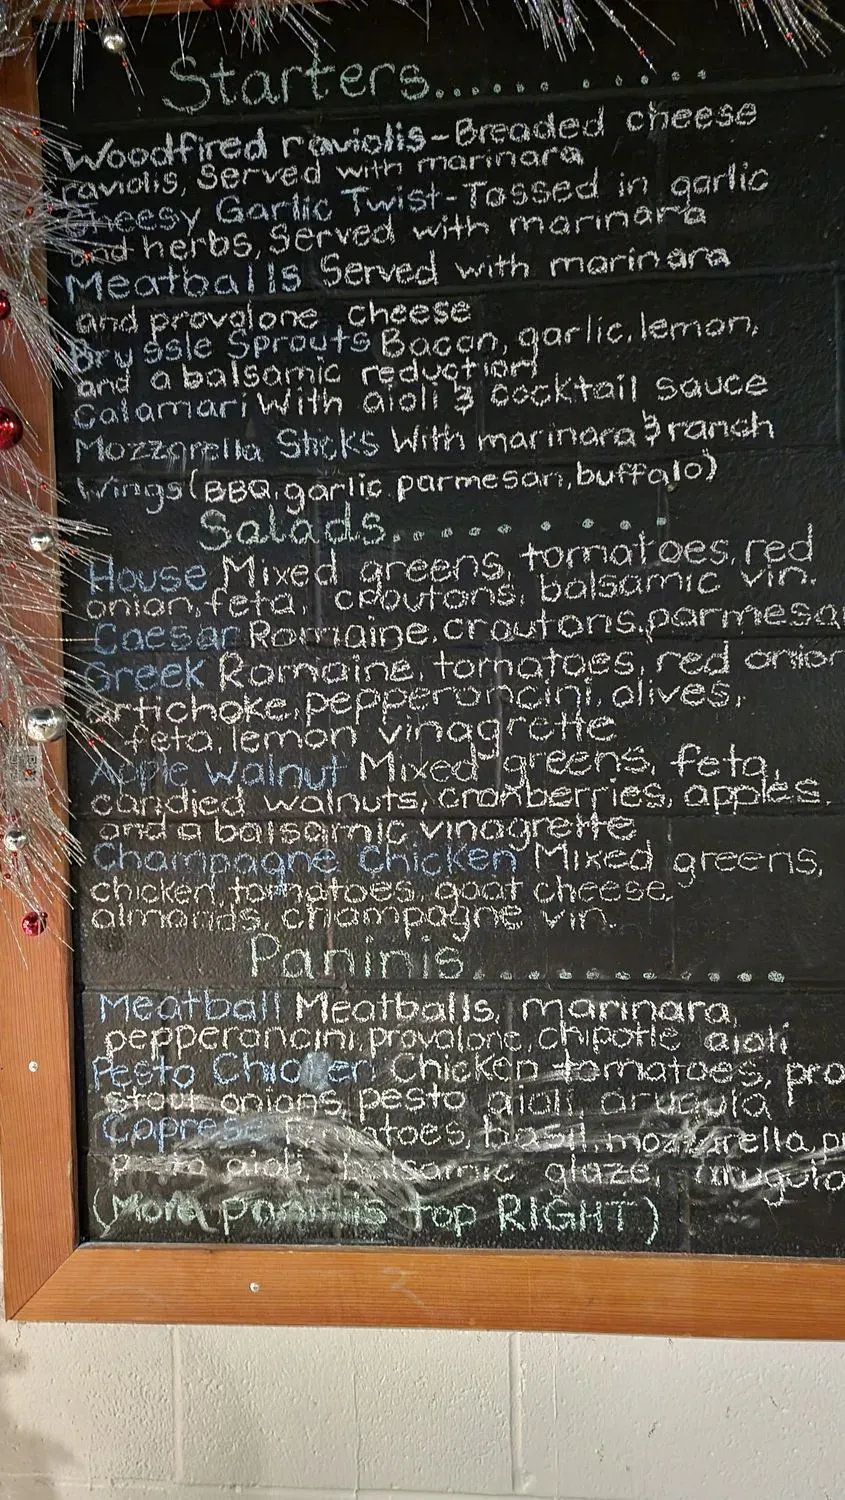 Starters.... . . . . .
Woodfired raviolis-Breaded cheese
raviolis, Served with marinara
Cheesy Garlic Twist-Tossed in garlic
and herbs, Served with marinara
Meatballs Served with marinara
and provolone cheese
Bryssle Sprouts Bacon, garlic, lemon,
and a balsamic reduction
Calamari With aioli & cocktail sauce
Mozzarella Sticks With marinara & ranch
Wings (BBQ, garlic parmesan, buffalo)
Salads. . . . . . . . .
House Mixed greens, tomatoes, red
onion, feta, croutons, balsamic vin.
Caesar Romaine, croutons, parmesa
Greek Romaine, tomatoes, red onion
artichoke, pepperoncini, olives,
feta, lemon vinagrette
Apple Walnut Mixed greens, feta,
candied walnuts, cranberries, apples,
and a balsamic vinagrette
Champagne Chicken Mixed greens,
chicken, tomatoes, goat cheese,
almonds, champagne vin.
Paninis. . . . . . . . . .
Meatball Meatballs, marinara,
pepperoncini, provolone, chipotle aioli
Pesto Chicken Chicken tomatoes, pro
stout onions, pesto aioli, arugula
Caprese toes, basil, mozzarella, pr
pesto aioli, balsamic glaze, arugula
(More paninis top RIGHT)